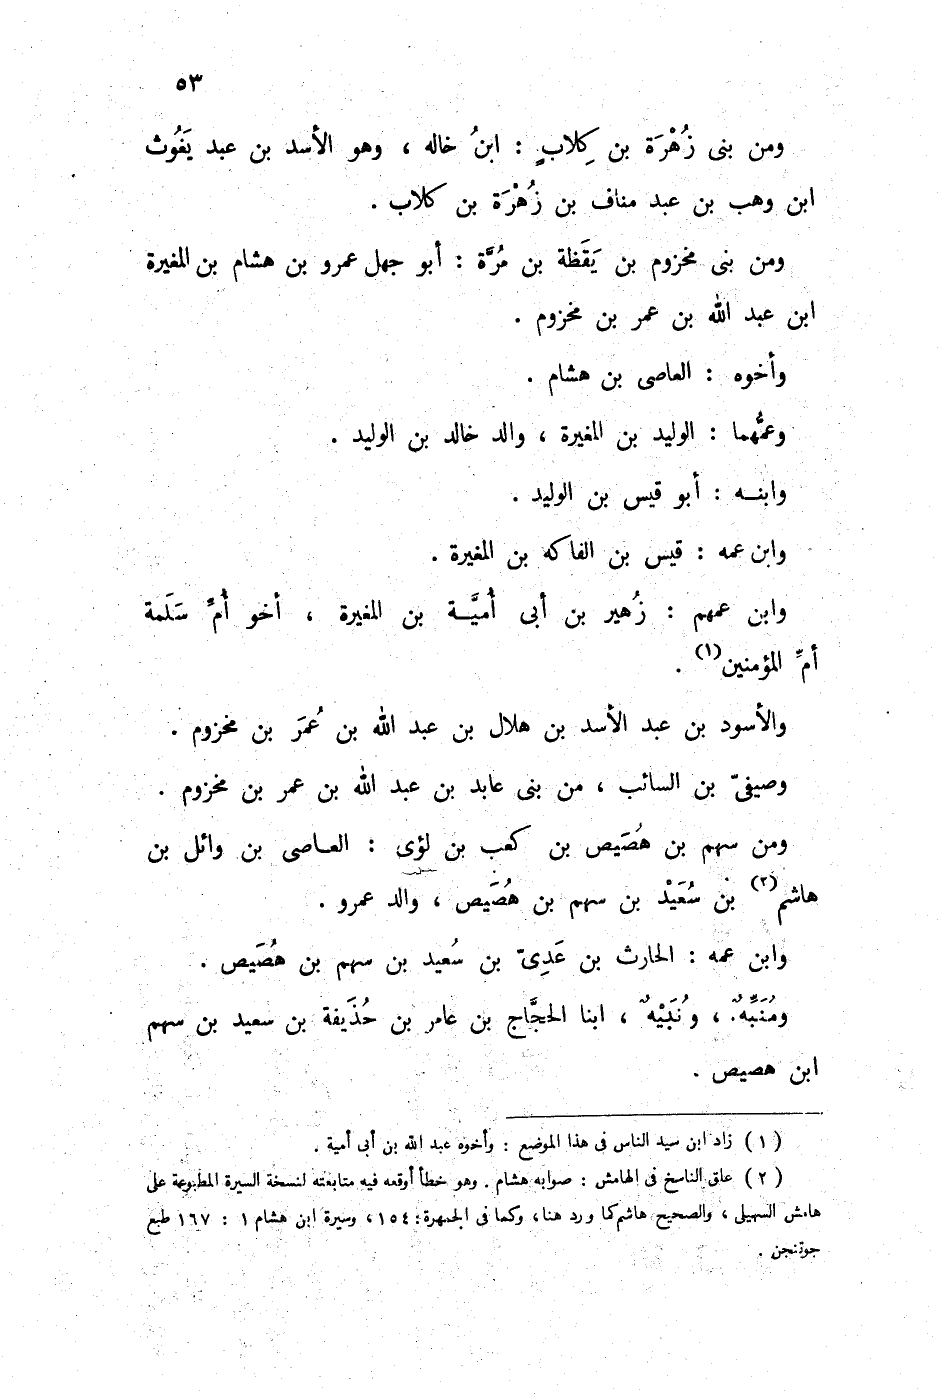 ٥٣
ومن بنى زُهْرَة بن كِلابٍ : ابنُ خاله ، وهو الأسد بن عبد يَغُوث
ابن وهب بن عبد مناف بن زُهْرَة بن كلاب .
ومن بنى مخزوم بن يَقَظة بن مُرَّة : أبو جهل عمرو بن هشام بن المغيرة
ابن عبد الله بن عمر بن مخزوم .
وأخوه : العاصى بن هشام .
وعمُّهما : الوليد بن المغيرة ، والد خالد بن الوليد .
وابنـه : أبو قيس بن الوليد .
وابن عمه : قيس بن الفاكه بن المغيرة .
وابن عمهم : زُهير بن أبى أُميَّـة بن المغيرة ، أخو أُمِّ سَلَمة
أمِّ المؤمنين(١) .
والأسود بن عبد الأسد بن هلال بن عبد الله بن عُمَر بن مخزوم .
وصيفىّ بن السائب ، من بنى عابد بن عبد الله بن عمر بن مخزوم .
ومن سهم بن هُصَيص بن كعب بن لؤى : العـاصى بن وائل بن
هاشم(٢) بن سُعَيْد بن سهم بن هُصَيص ، والد عمرو .
وابن عمه : الحارث بن عَدِىّ بن سُعيد بن سهم بن هُصَيص .
ومُنَبِّهٌ ، ونُبَيْهٌ ، ابنا الحجَّاج بن عامر بن حُذَيفة بن سعيد بن سهم
ابن هصيص .
( ١ ) زاد ابن سيد الناس فى هذا الموضع : وأخوه عبد الله بن أبى أمية .
( ٢ ) علق الناسخ فى الهامش : صوابه هشام . وهو خطأ أوقعه فيه متابعته لنسخة السيرة المطبوعة على
هامش السهيلى ، والصحيح هاشم كما ورد هنا ، وكما فى الجمهرة : ١٥٤ ، وسيرة ابن هشام ١ : ١٦٧ طبع
جوتنجن .